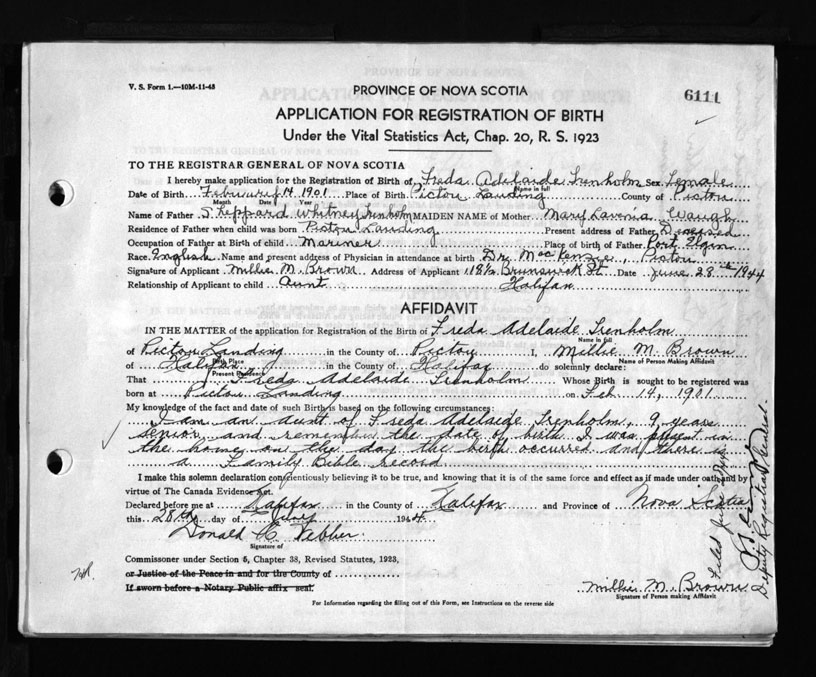 V. S. Form 1.—10M-11-43
PROVINCE OF NOVA SCOTIA
6111
APPLICATION FOR REGISTRATION OF BIRTH
Under the Vital Statistics Act, Chap. 20, R. S. 1923
TO THE REGISTRAR GENERAL OF NOVA SCOTIA
I hereby make application for the Registration of Birth of Freda Adelaide Trenholm Sex Female
Name in full
Date of Birth February 14 1901 Place of Birth Pictou Landing County of Pictou
Month Date Year
Name of Father S. Kippard Whitney Trenholm MAIDEN NAME of Mother Mary Lavinia Waugh
Residence of Father when child was born Pictou Landing Present address of Father Deceased
Occupation of Father at Birth of child Mariner Place of birth of Father Port Elgin
Race English Name and present address of Physician in attendance at birth Dr. MacKenzie, Pictou
Signature of Applicant Millie M. Brown Address of Applicant 18½ Brunswick St. Date June 28th 1944
Relationship of Applicant to child Aunt Halifax
AFFIDAVIT
IN THE MATTER of the application for Registration of the Birth of Freda Adelaide Trenholm
Name in full
of Pictou Landing in the County of Pictou I, Millie M. Brown
Birth Place Name of Person Making Affidavit
of Halifax in the County of Halifax do solemnly declare:
Present Residence
That Freda Adelaide Trenholm Whose Birth is sought to be registered was
born at Pictou Landing on Feb 14, 1901
My knowledge of the fact and date of such Birth is based on the following circumstances:
I am an aunt of Freda Adelaide Trenholm, 9 years
senior and remember the date of birth I was present in
the home on the day the birth occurred and there is
a Family Bible record
I make this solemn declaration conscientiously believing it to be true, and knowing that it is of the same force and effect as if made under oath and by
virtue of The Canada Evidence Act.
Declared before me at Halifax in the County of Halifax and Province of Nova Scotia
this 28th day of 1944
Donald Webber
Signature of
Commissoner under Section 5, Chapter 38, Revised Statutes, 1923,
or Justice of the Peace in and for the County of
If sworn before a Notary Public affix seal.
Millie M. Brown
Signature of Person making Affidavit
For Information regarding the filling out of this Form, see Instructions on the reverse side
Filed June
Deputy Registrar General.